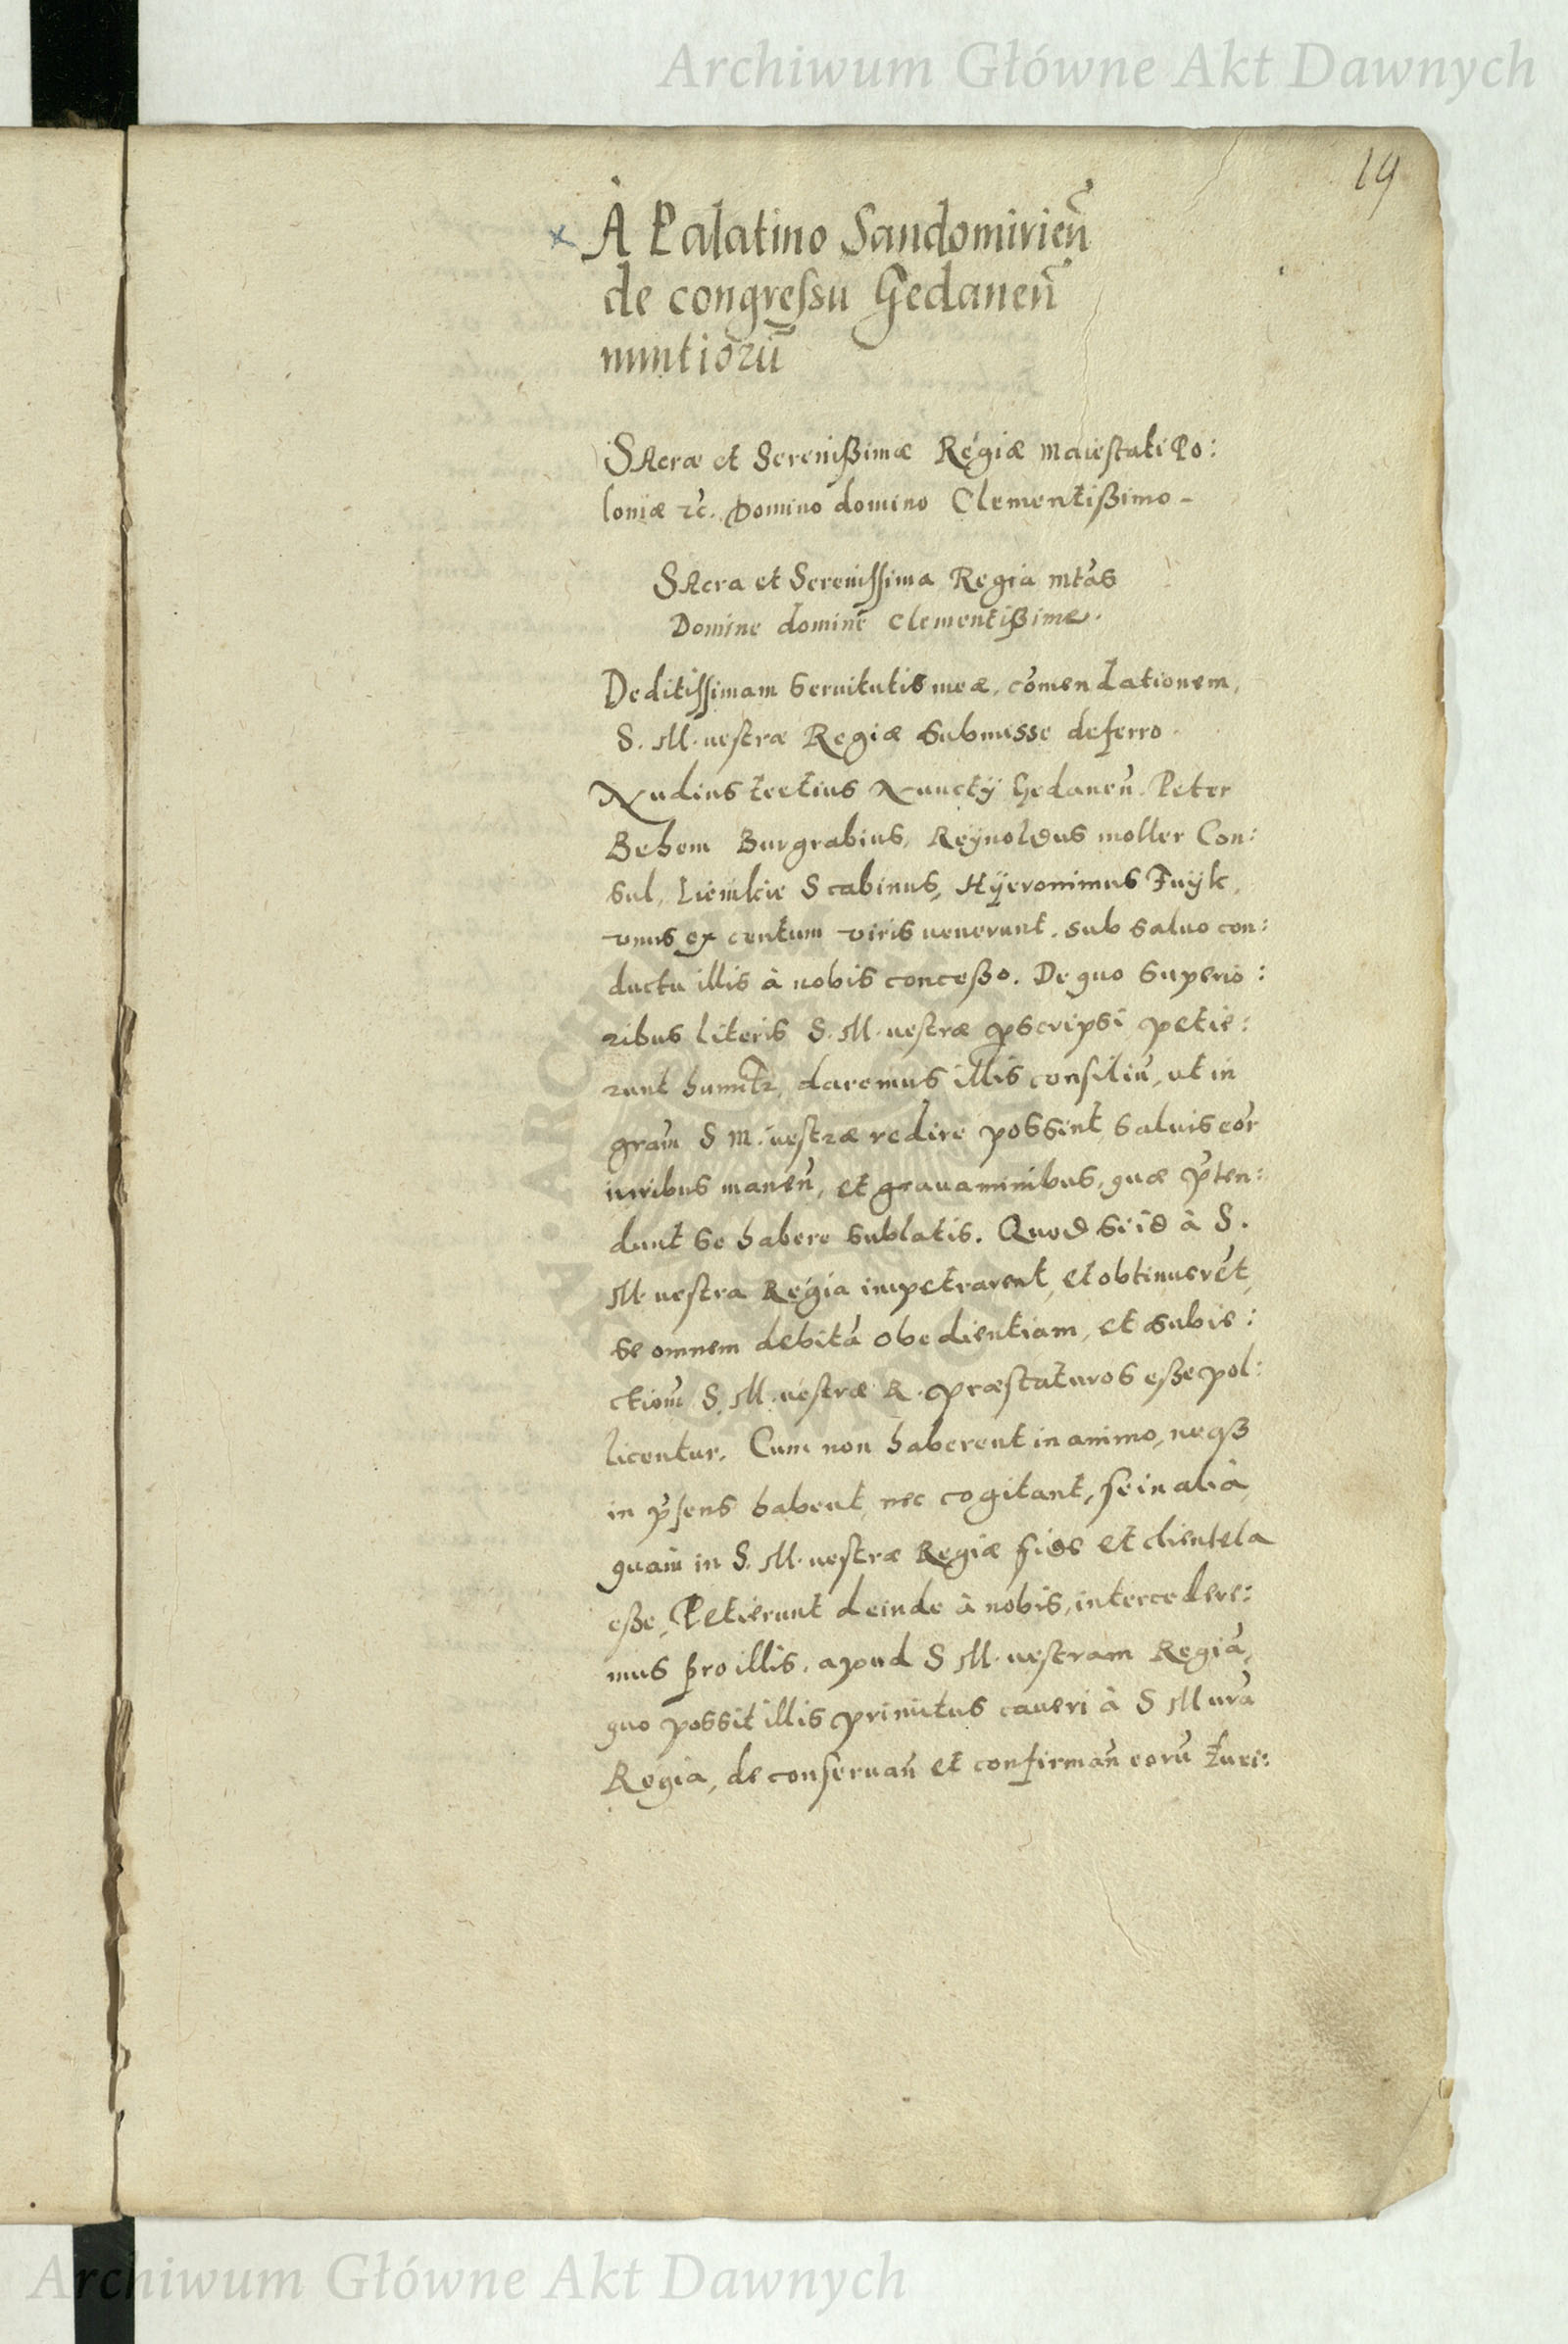 Archiwum Główne Akt Dawnych
19
À Palatino Sandomirień
de congressu Gedaneń
nuntiorū
SAcræ et Serenißimæ Regiæ Maiestati Po:
loniæ &c. Domino domino Clementißimo -
SAcra et Serenissima Regia Mtas
Domine domine Clementißime.
Deditissimam Seruitutis meæ, cōmendationem,
S. M. uestræ Regiæ Submisse deferro.
Nudius tertius Nunctÿ Gedaneń. Peter
Behem Burgrabius, Reÿnoldus moller Con:
sul, Liemkie Scabinus, Hÿeronimus Fuÿk,
vnus ex centum viris uenerunt. sub saluo con:
ductu illis à nobis conceßo. De quo superio:
ribus literis S. M. uestræ pscripsi, petie:
runt humitr, daremus illis consiliū, ut in
gram S M. uestræ redire possint, saluis eor
iuribus maneń, et grauaminibus, quæ pten:
dunt se habere sublatis. Quod si id à S.
M. uestra Regia impetrarent, et obtinuerēt,
se omnem debitā obedientiam, et subie:
ctiom S. M. uestræ R. præstaturos eße pol:
licentur. Cum non haberent in animo, neqз
in psens habent, nec cogitant, se in alia
quam in S. M. uestræ Regiæ fide et clientela
eße, Petierunt deinde à nobis, intercedere:
mus pro illis, apud S M. uestram Regiā,
quo possit illis primitus caueri à S M ura
Regia, de conseruań et confirmań eorū Iuri:
Archiwum Główne Akt Dawnych